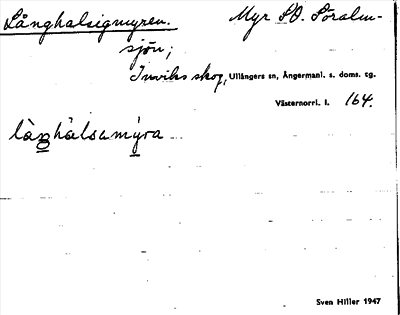 Långhalsigmyren. Myr SO. Söralm-
sjön;
Inviks skog, Ullångers sn, Ångermanl. s. doms. tg.
Västernorrl. l. 164.
làŋhàlsamýra
Sven Hiller 1947